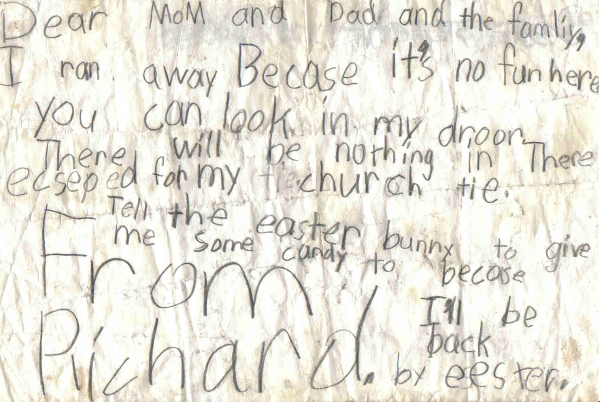 Dear MoM and Dad and the famliy,
I ran away Becase it's no fun here
you can look in my droor
There will be nothing in There
ecseped for my church tie.
Tell the easter bunny to give
me some candy to becase
I'll be
back
by eester.
From
Richard.